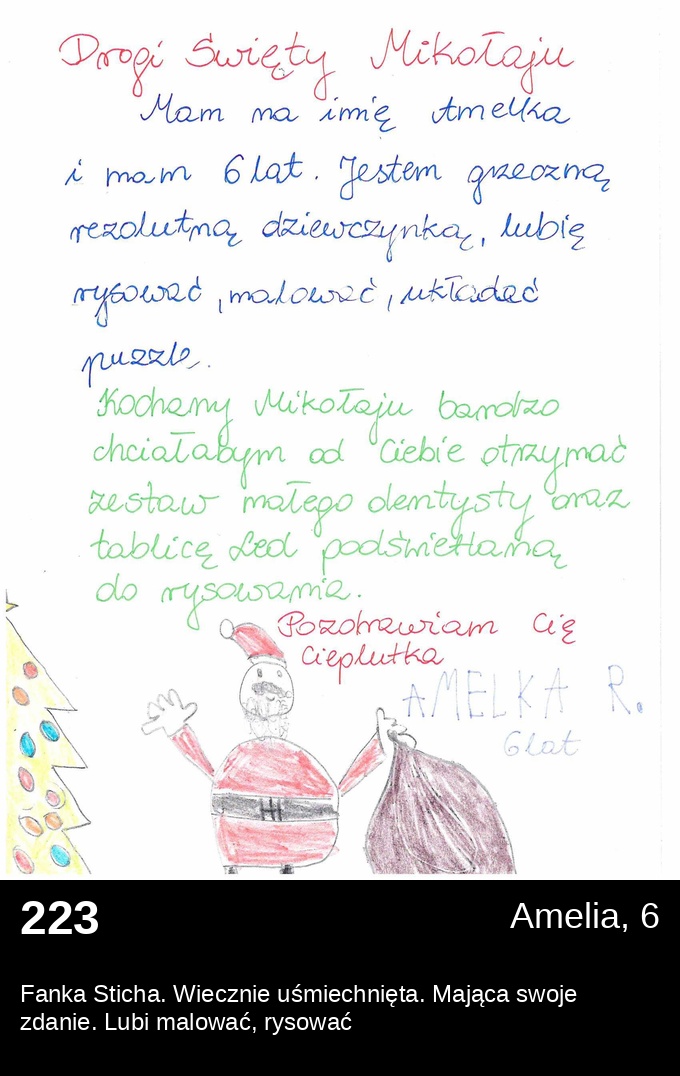 Drogi Święty Mikołaju
Mam na imię Amelka
i mam 6 lat. Jestem grzeczną
rezolutną dziewczynką, lubię
rysować, malować, układać
puzzle.
Kochany Mikołaju bardzo
chciałabym od Ciebie otrzymać
zestaw małego dentysty oraz
tablicę Led podświetlaną
do rysowania.
Pozdrawiam Cię
Cieplutko
AMELKA R.
6 lat
223
Amelia, 6
Fanka Sticha. Wiecznie uśmiechnięta. Mająca swoje
zdanie. Lubi malować, rysować